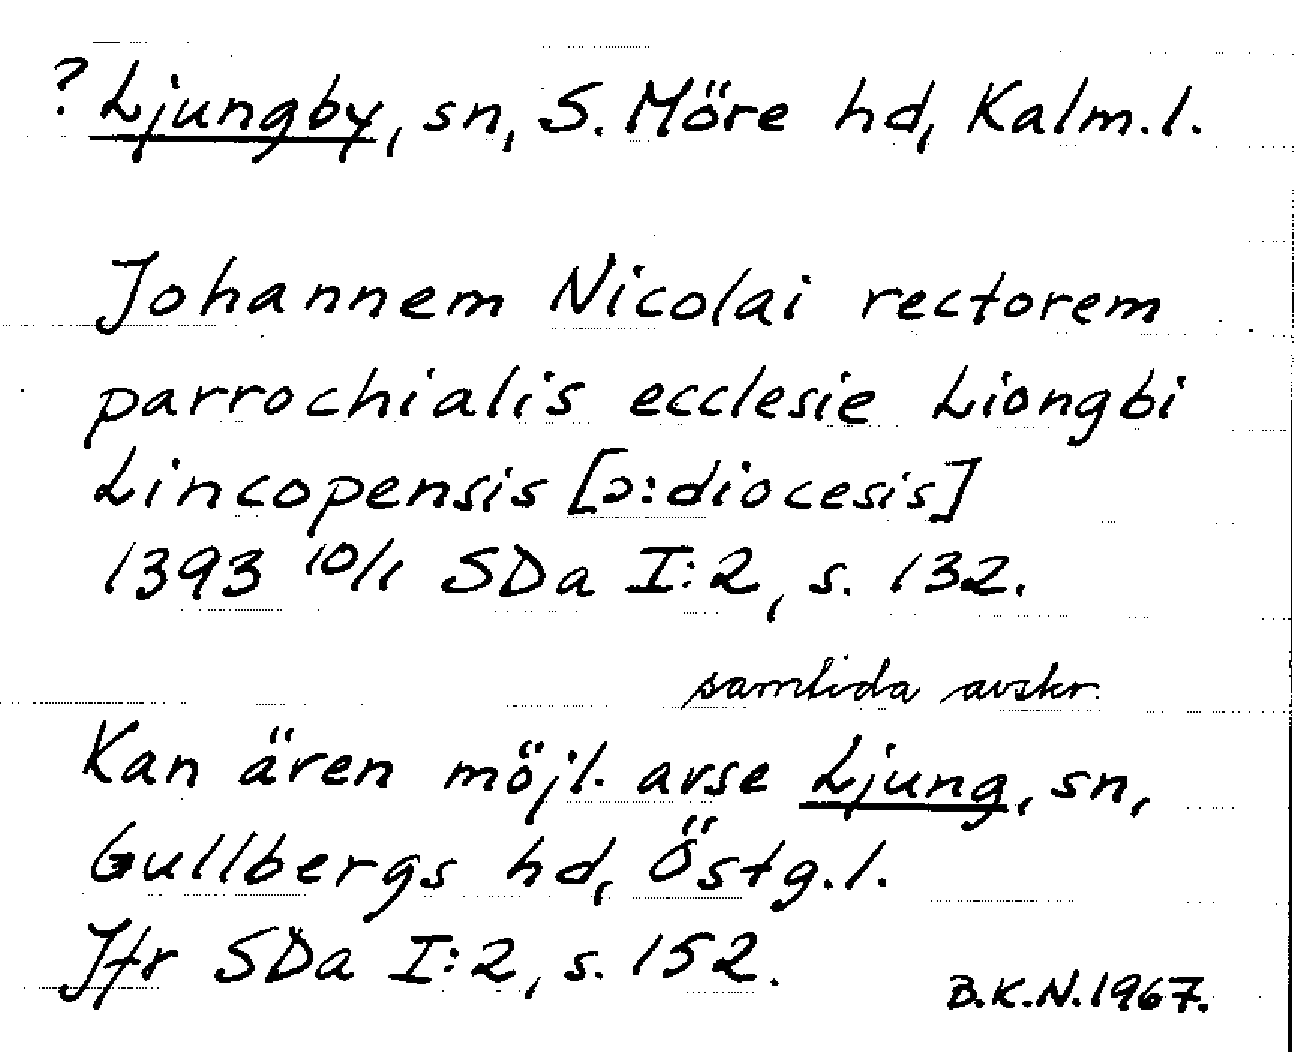 ? Ljungby, sn, S. Möre hd, Kalm.l.
Johannem Nicolai rectorem
parrochialis ecclesie Liongbi
Lincopensis [ɔ: diocesis]
1393 10/1 SDa I:2, s. 132.
samtida avskr.
Kan ären möjl. avse Ljung, sn,
Gullbergs hd, Östg.l.
Jfr SDa I:2, s. 152.
B.K.N. 1967.